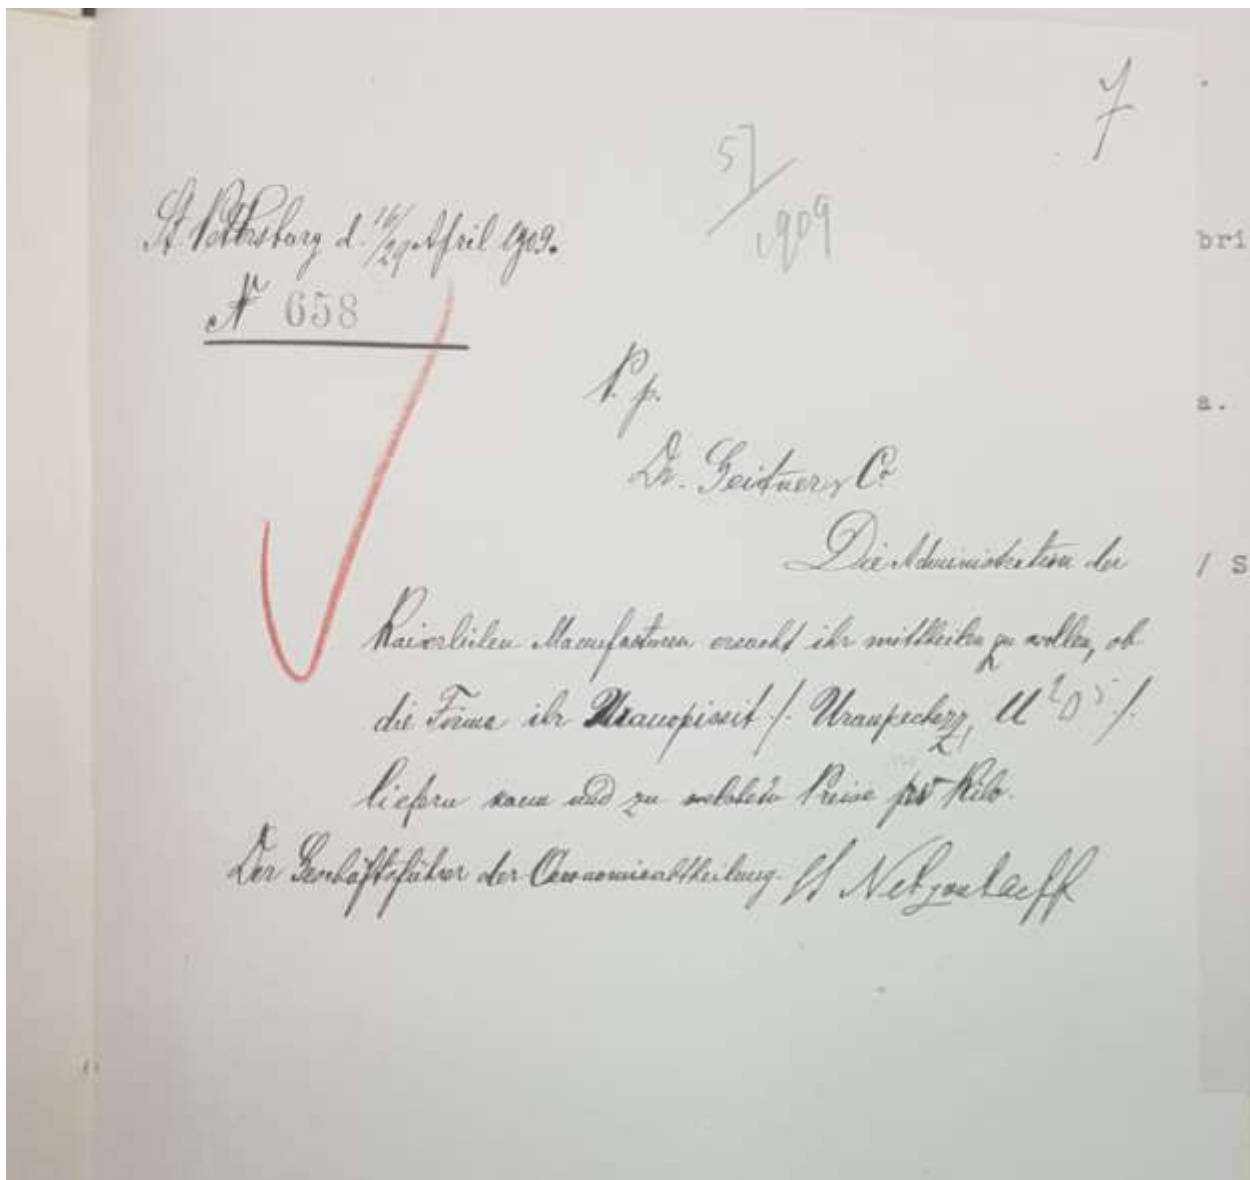 7
57/1909
St. Petersburg d. 16/29 April 1909.
N 658
P. p.
Dr. Geitner & Co
Die Administration der
Kaiserlichen Manufacturen ersucht ihr mittheilen zu wollen, ob
die Firma ihr Uranopissit /. Uranpecherz, U² O⁵ /.
liefern kann und zu welchem Preise pro Kilo.
Der Geschäftsführer der Oeconomieabtheilung.
bri
a.
/ S